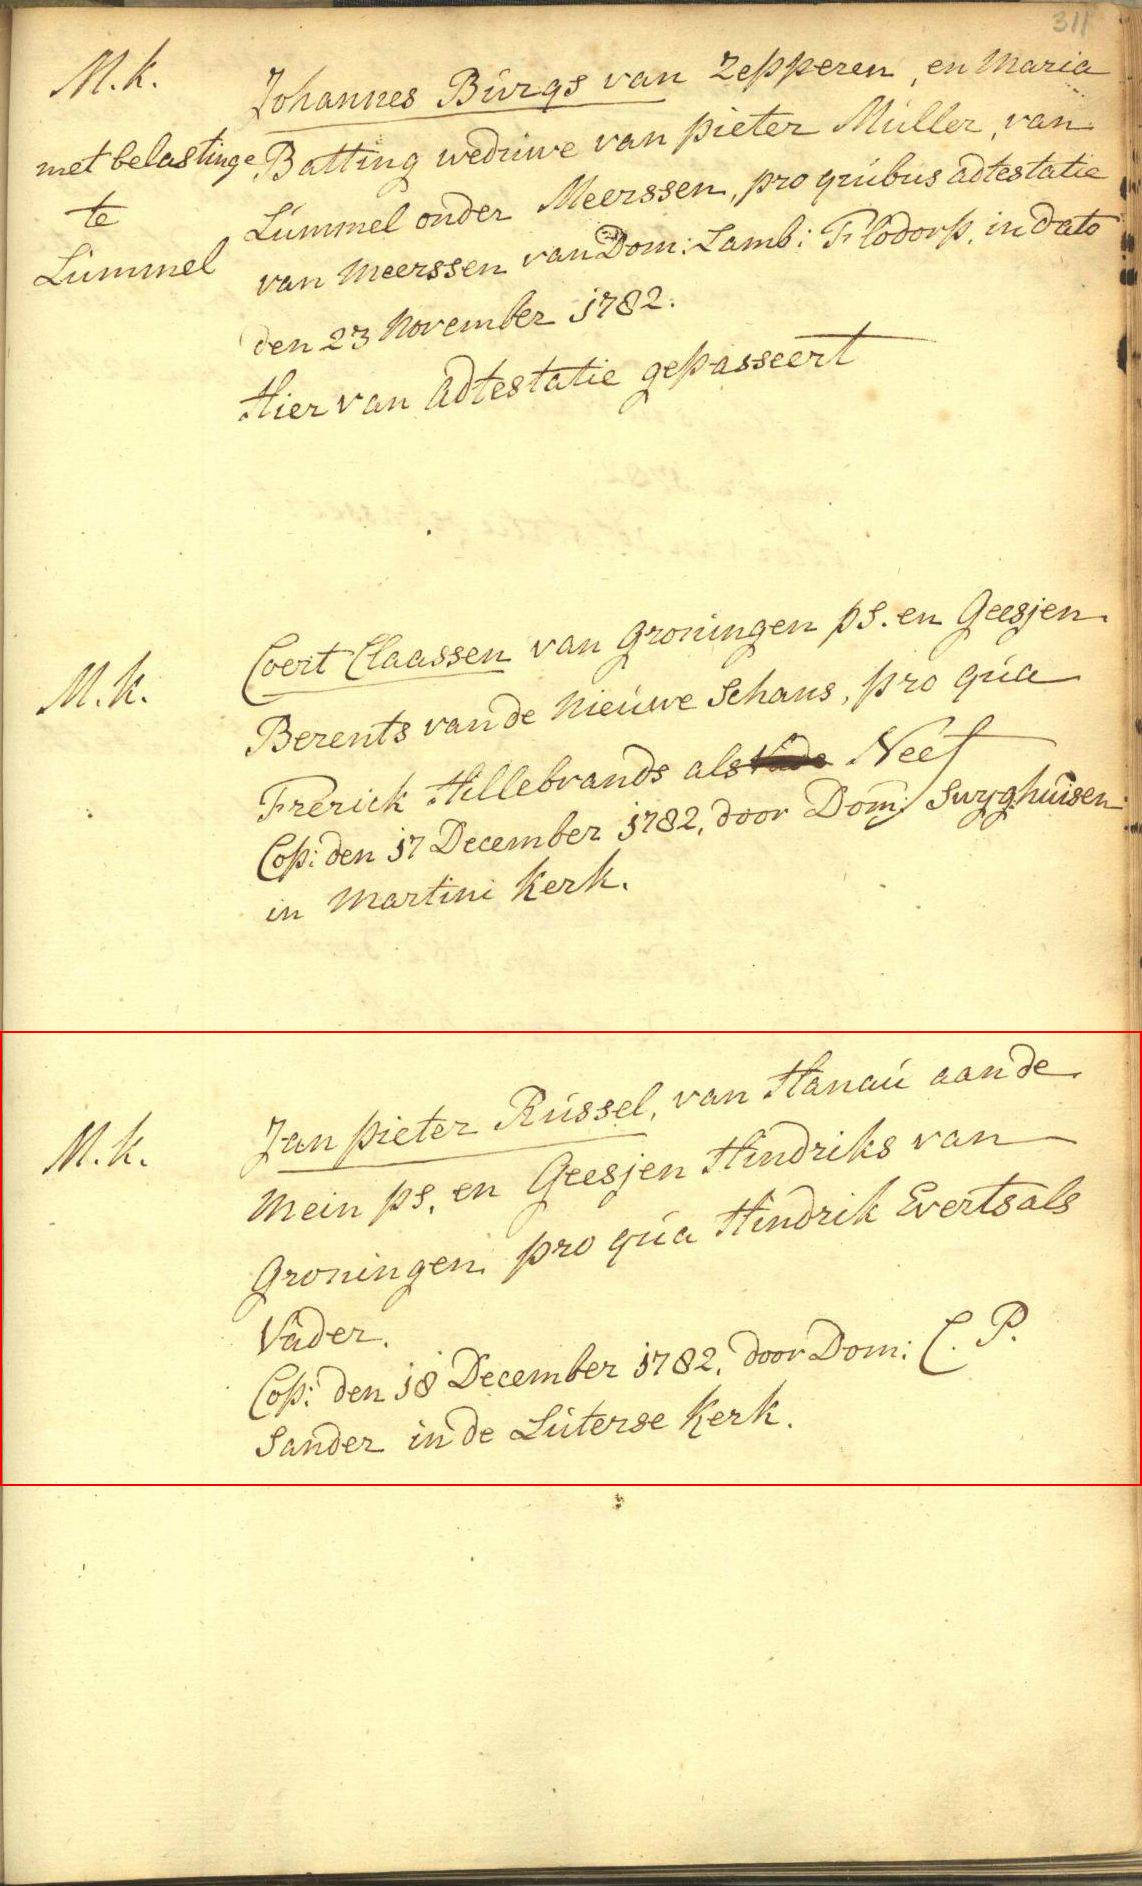 311
M. k.
Johannes Bürgs van Zepperen, en Maria
met belastinge
Batting weduwe van pieter Müller, van
te
Lümmel onder Meerssen, pro quibus adtestatie
Lümmel
van Meerssen van Dom: Lamb: Flodorp, in dato
den 23 November 1782.
Hier van adtestatie gepasseert
M. k.
Coert Claassen van Groningen ps. en Geesjen
Berents van de Nieuwe Schans, pro qua
Frerick Hillebrands als Neef
Cop: den 17 December 1782, door Dom: Swyghuisen
in Martini Kerk.
M. k.
Jan pieter Rüssel, van Hanau aan de
Mein ps, en Geesjen Hindriks van
Groningen pro qua Hindrik Everts als
Vader.
Cop: den 18 December 1782, door Dom: C. P.
Sander in de Luterse Kerk.